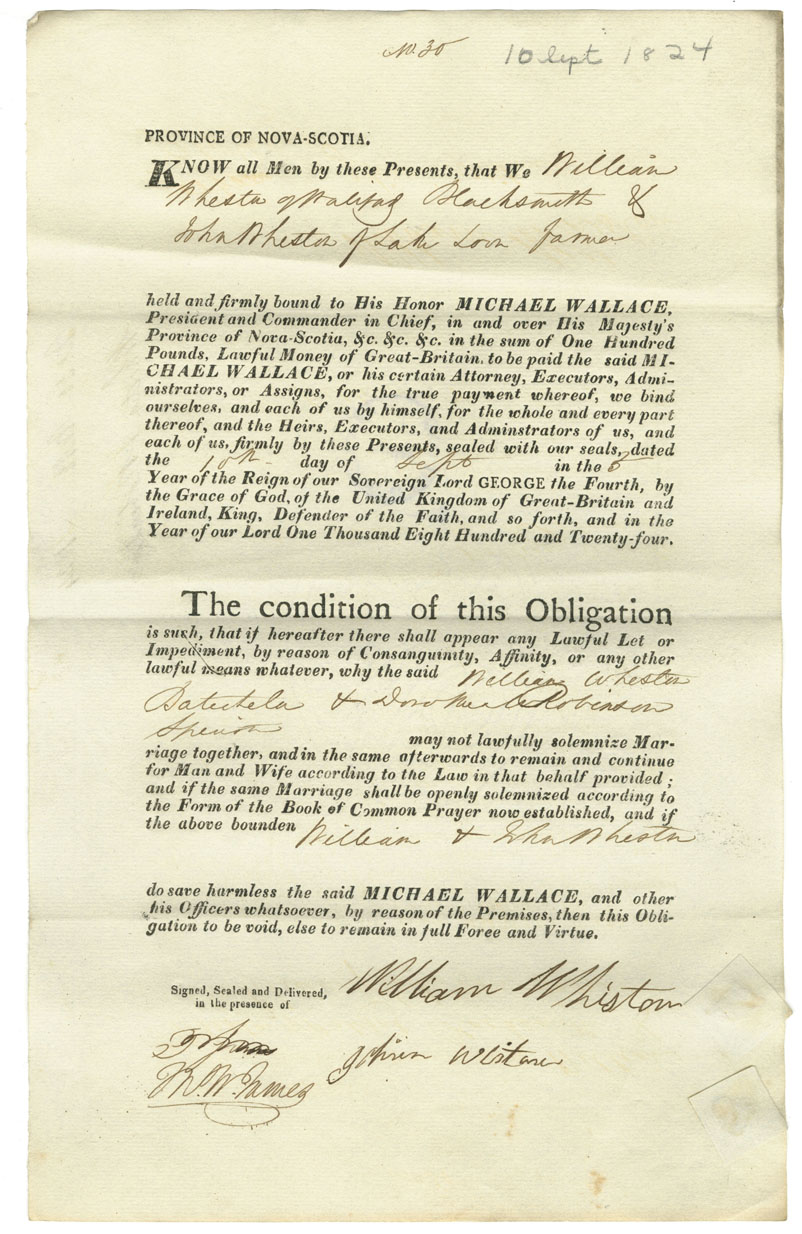 No. 30
10 Sept 1824
PROVINCE OF NOVA-SCOTIA.
KNOW all Men by these Presents, that We William
Wheston of Halifax Blacksmith &
John Wheston of Lake Loon Farmer
held and firmly bound to His Honor MICHAEL WALLACE,
President and Commander in Chief, in and over His Majesty's
Province of Nova-Scotia, &c. &c. &c. in the sum of One Hundred
Pounds, Lawful Money of Great-Britain, to be paid the said MI-
CHAEL WALLACE, or his certain Attorney, Executors, Admi-
nistrators, or Assigns, for the true payment whereof, we bind
ourselves, and each of us by himself, for the whole and every part
thereof, and the Heirs, Executors, and Adminstrators of us, and
each of us, firmly by these Presents, sealed with our seals, dated
the 10th day of Sept in the 5
Year of the Reign of our Sovereign Lord GEORGE the Fourth, by
the Grace of God, of the United Kingdom of Great-Britain and
Ireland, King, Defender of the Faith, and so forth, and in the
Year of our Lord One Thousand Eight Hundred and Twenty-four.
The condition of this Obligation
is such, that if hereafter there shall appear any Lawful Let or
Impediment, by reason of Consanguinity, Affinity, or any other
lawful means whatever, why the said William Wheston
Batchela & Dorothea Robinson
Spinster
may not lawfully solemnize Mar-
riage together, and in the same afterwards to remain and continue
for Man and Wife according to the Law in that behalf provided;
and if the same Marriage shall be openly solemnized according to
the Form of the Book of Common Prayer now established, and if
the above bounden William & John Wheston
do save harmless the said MICHAEL WALLACE, and other
his Officers whatsoever, by reason of the Premises, then this Obli-
gation to be void, else to remain in full Force and Virtue.
Signed, Sealed and Delivered,
in the presence of
William Whiston
John Wistone
W. James